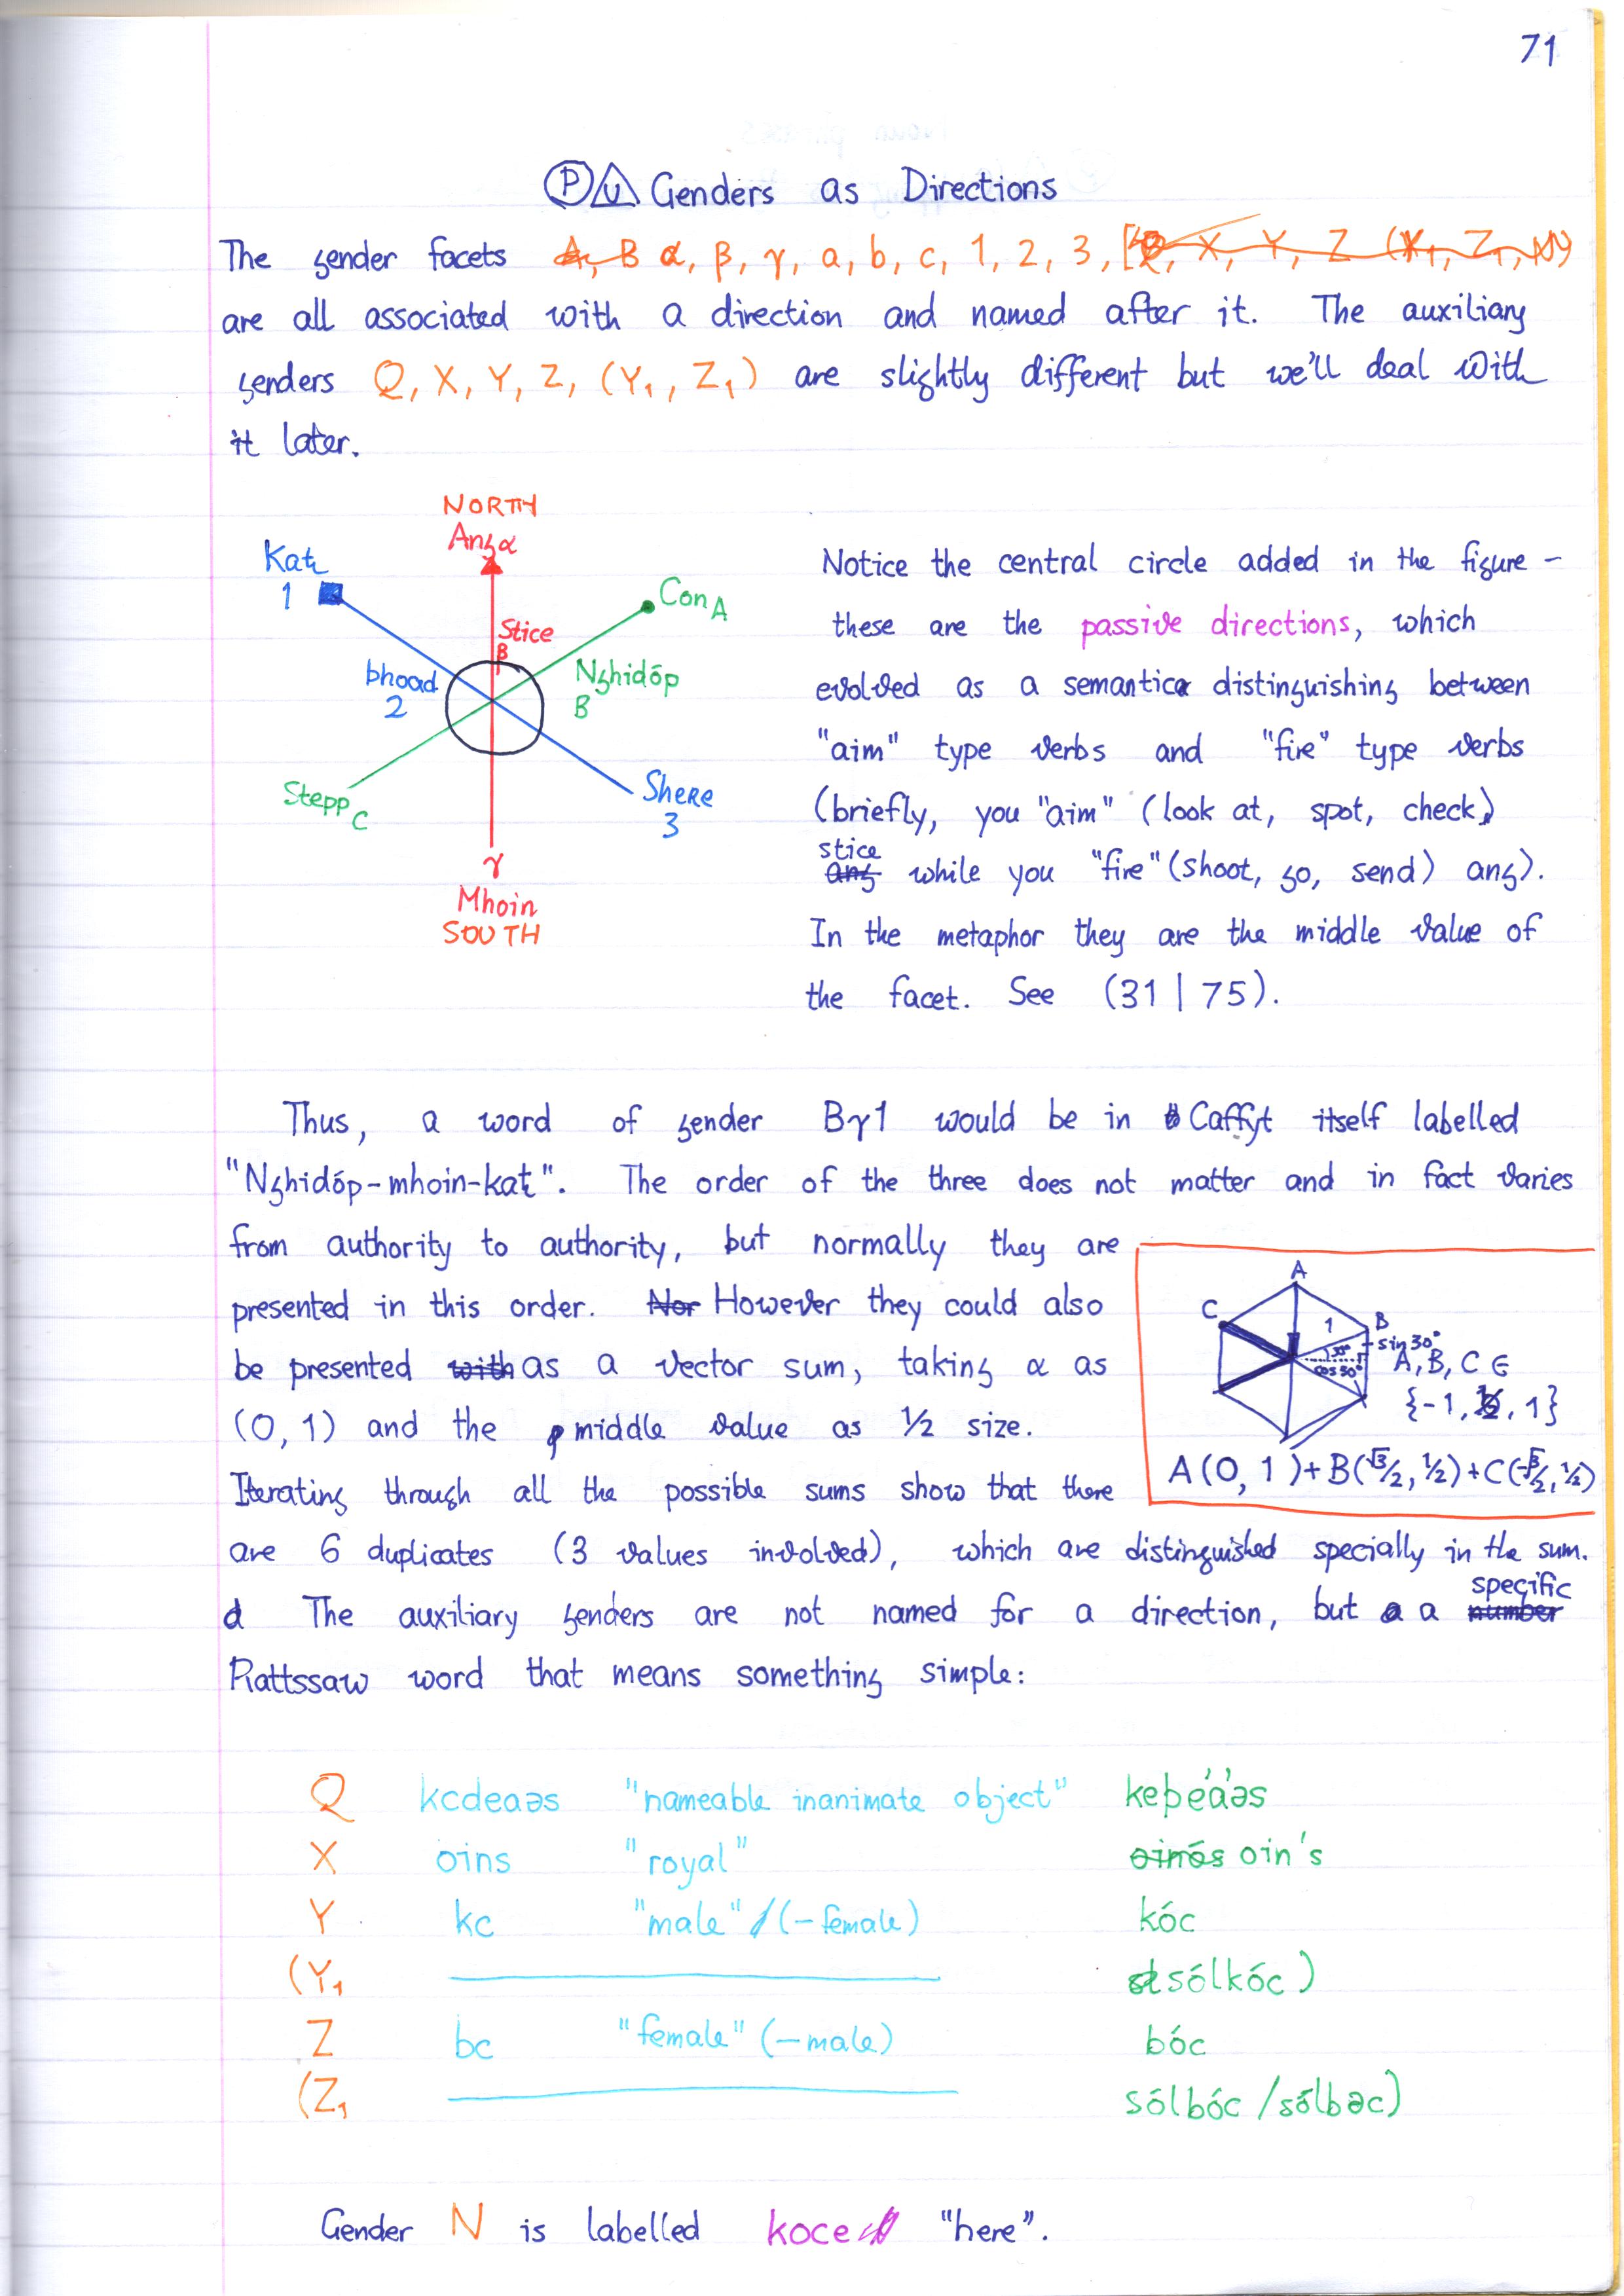 71
P U Genders as Directions
The gender facets A, B α, β, γ, a, b, c, 1, 2, 3, [Q, X, Y, Z (Y1, Z1, N)
are all associated with a direction and named after it. The auxiliary
genders Q, X, Y, Z, (Y1, Z1) are slightly different but we'll deal with
it later.
NORTH
Ang α
Kaƫ
1
Con A
Stice
β
bhoad
2
Nghidóp
B
Stepp C
Shere
3
γ
Mhoin
SOUTH
Notice the central circle added in the figure –
these are the passive directions, which
evolved as a semantic distinguishing between
"aim" type verbs and "fire" type verbs
(briefly, you "aim" (look at, spot, check)
stice
ang while you "fire" (shoot, go, send) ang).
In the metaphor they are the middle value of
the facet. See (31 | 75).
Thus, a word of gender Bγ1 would be in Caffyt itself labelled
"Nghidóp-mhoin-kaƫ". The order of the three does not matter and in fact varies
from authority to authority, but normally they are
presented in this order. Nor However they could also
be presented with as a vector sum, taking α as
(0, 1) and the middle value as ½ size.
Iterating through all the possible sums show that there
are 6 duplicates (3 values involved), which are distinguished specially in the sum.
A
C
B
1
30°
sin 30°
cos 30°
A, B, C ∈
{-1, ½, 1}
A(0, 1)+B(√3/2, ½)+C(-√3/2, ½)
d The auxiliary genders are not named for a direction, but a a number specific
Rattssaw word that means something simple:
Q kcdeaəs "nameable inanimate object" keþe'a'əs
X oins "royal" oinós oin's
Y kc "male" / (–female) kóc
(Y1 sólkóc)
Z bc "female" (–male) bóc
(Z1 sólbóc / sólbəc)
Gender N is labelled koce "here".